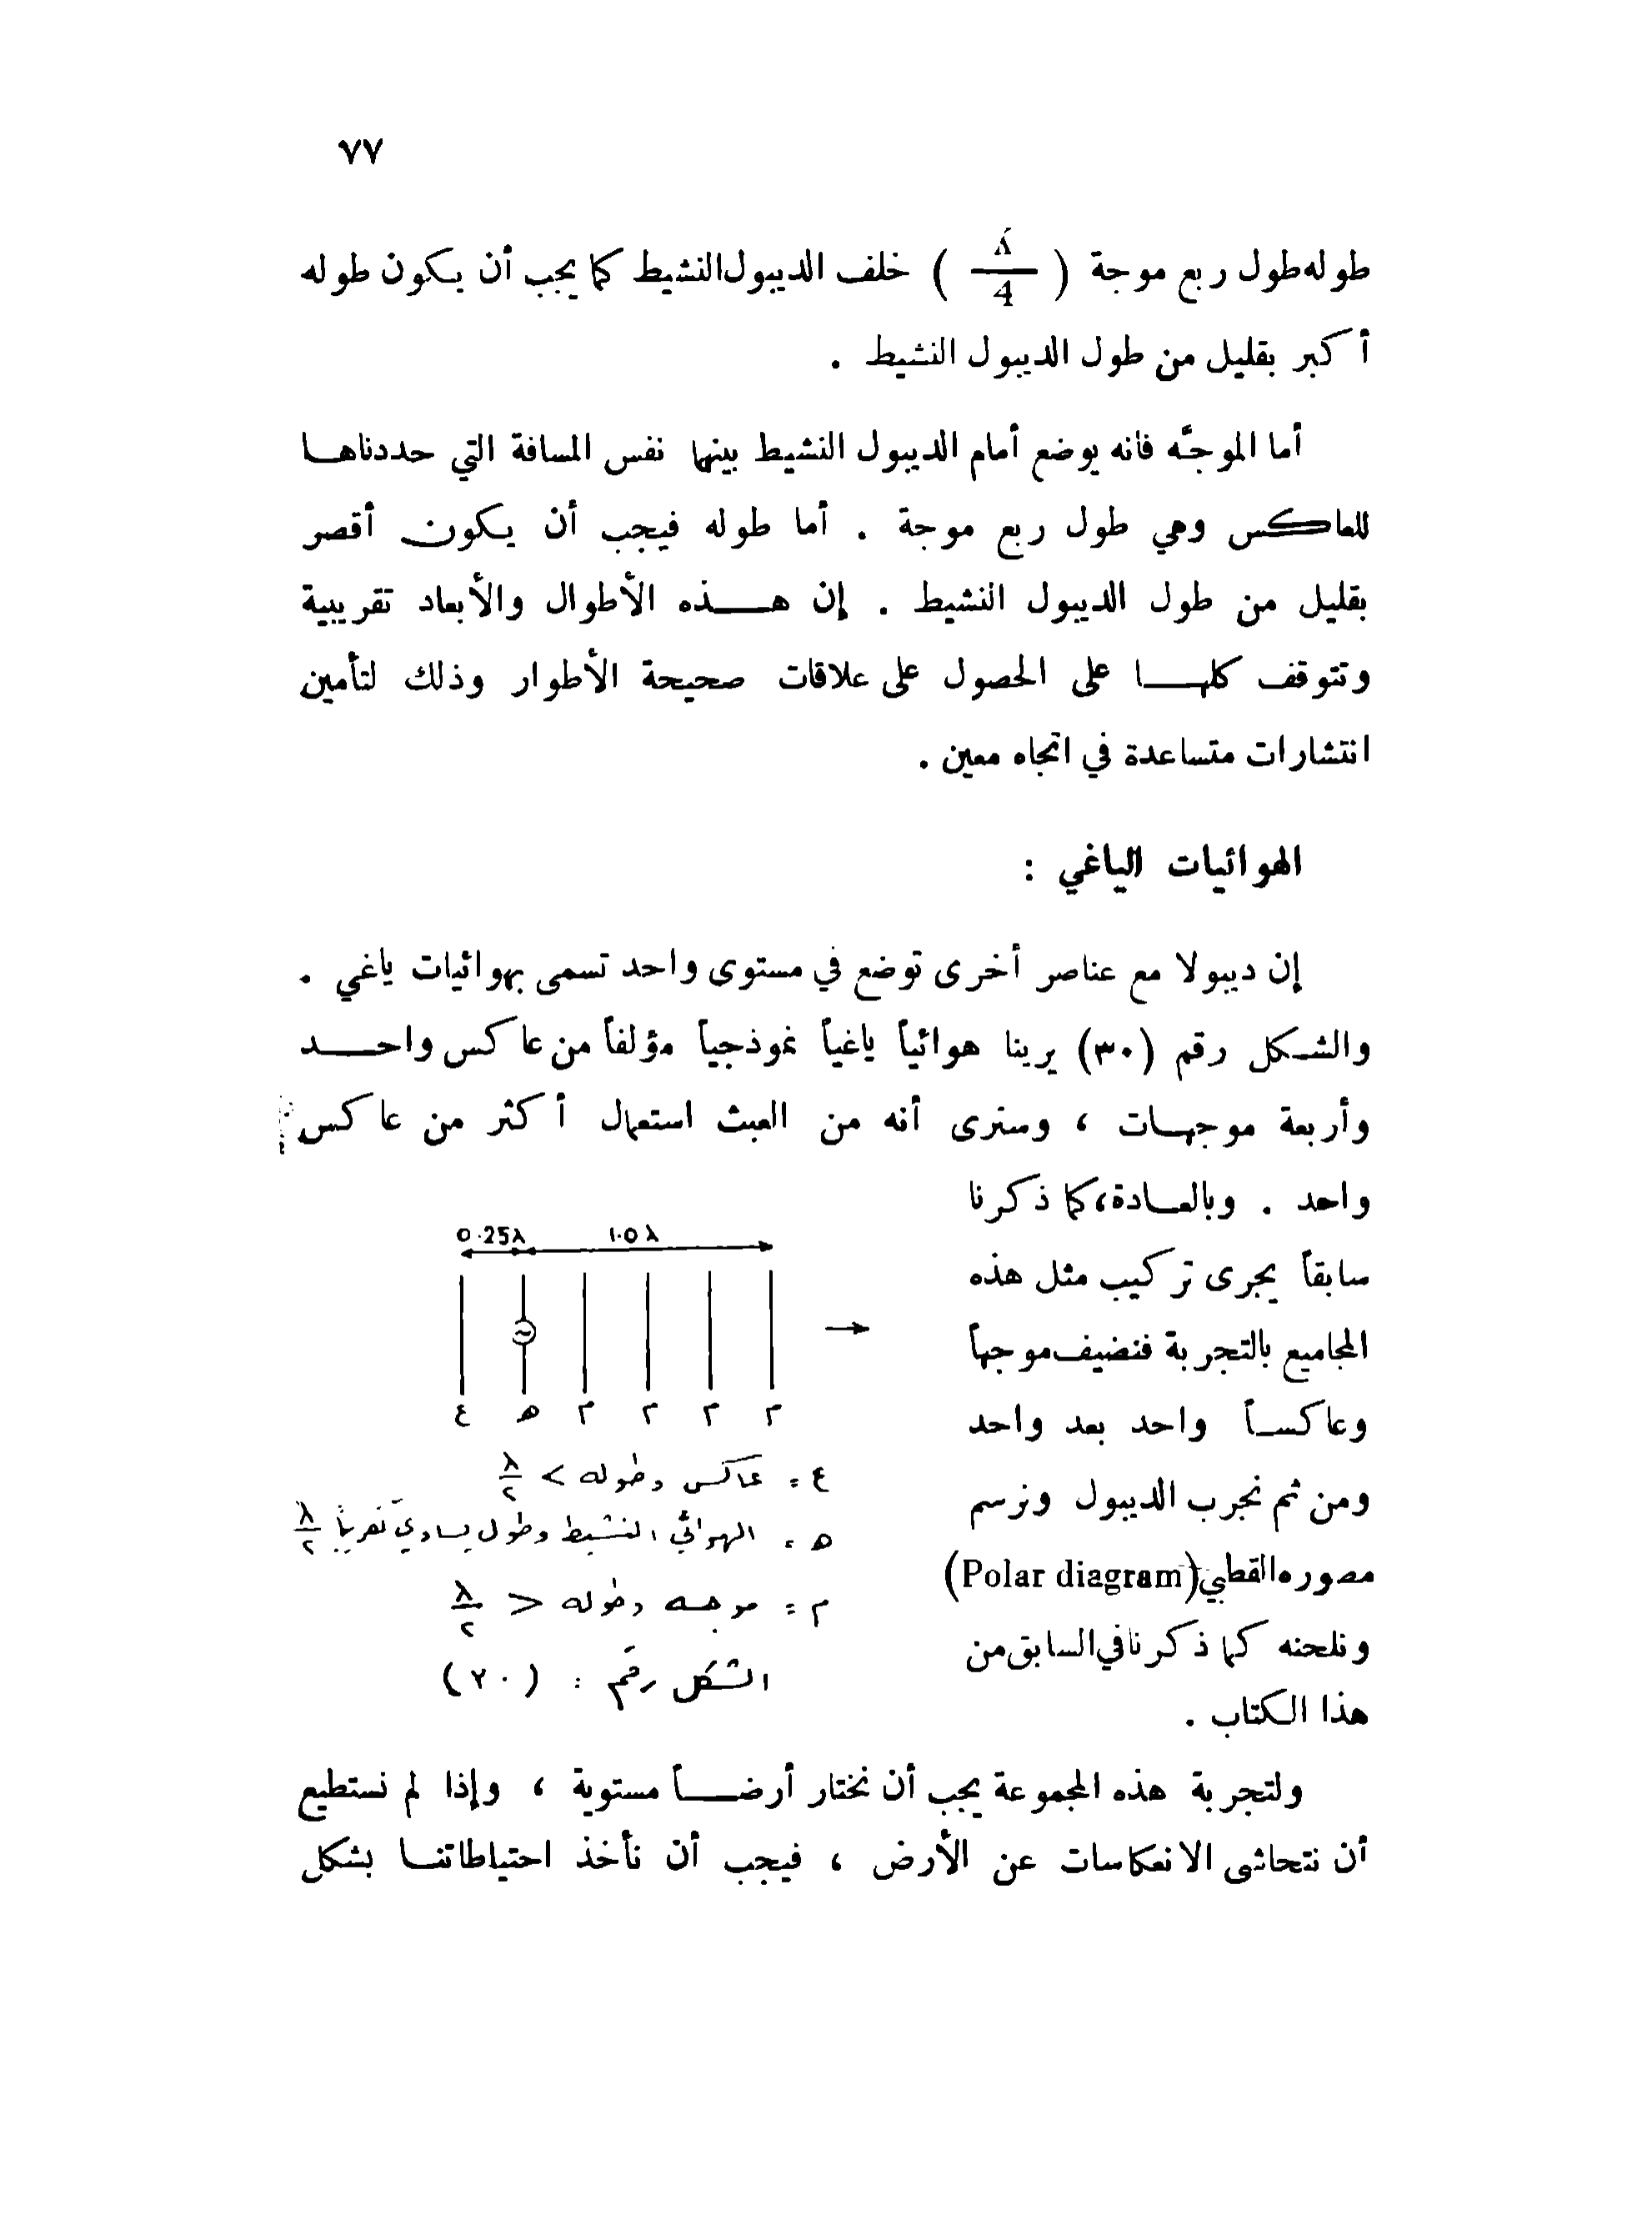 ٧٧
طوله طول ربع موجة ( λ/4 ) خلف الديبول النشيط كما يجب أن يكون طوله
أكبر بقليل من طول الديبول النشيط .
أما الموجّه فانه يوضع أمام الديبول النشيط بينهما نفس المسافة التي حددناها
للعاكس وهي طول ربع موجة . أما طوله فيجب أن يكون أقصر
بقليل من طول الديبول النشيط . إن هذه الأطوال والأبعاد تقريبية
وتتوقف كلها على الحصول على علاقات صحيحة الأطوار وذلك لتأمين
انتشارات متساعدة في اتجاه معين .
الهوائيات الياغي :
إن ديبولا مع عناصر أخرى توضع في مستوى واحد تسمى بهوائيات ياغي .
والشكل رقم (٣٠) يرينا هوائياً ياغياً نموذجياً مؤلفاً من عاكس واحد
وأربعة موجهات ، وسنرى أنه من العبث استعمال أكثر من عاكس
واحد . وبالعادة، كما ذكرنا
سابقاً يجرى تركيب مثل هذه
المجاميع بالتجربة فنضيف موجهاً
وعاكساً واحد بعد واحد
ومن ثم نجرب الديبول ونرسم
مصوره القطبي (Polar diagram)
ونلحنه كما ذكرنا في السابق من
هذا الكتاب .
0.25λ 1.0λ
~ →
ع ه م م م م
ع = عاكس وطوله > λ/٢
ه = الهوائي النشيط وطول يساوي تقريباً λ/٢
م = موجه وطوله < λ/٢
الشكل رقم : (٣٠)
ولتجربة هذه المجموعة يجب أن نختار أرضاً مستوية ، وإذا لم نستطيع
أن نتحاشى الانعكاسات عن الأرض ، فيجب أن نأخذ احتياطاتنا بشكل